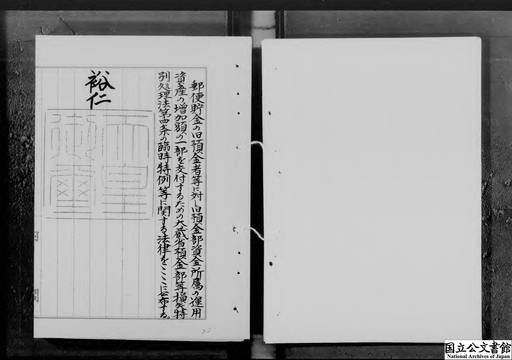 郵便貯金の旧預金者等に対し旧預金部資金所属の運用
資産の増加額の一部を交付するための大蔵省預金部等損失特
別処理法第四条の臨時特例等に関する法律をここに公布する。
裕仁
天皇
御璽
国立公文書館
National Archives of Japan